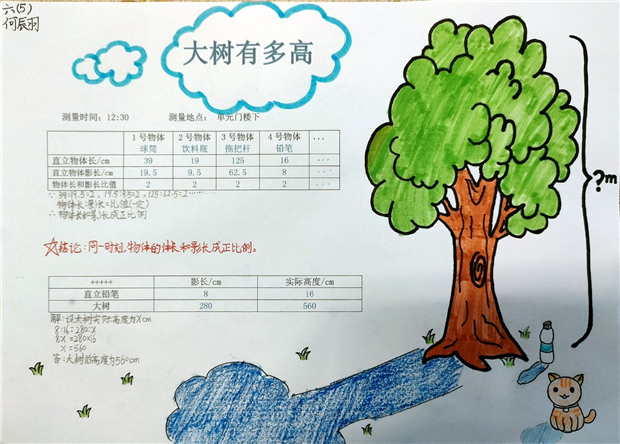 六(5)
何辰羽
大树有多高
测量时间：12:30 测量地点：单元门楼下
1号物体 2号物体 3号物体 4号物体 ...
球筒 饮料瓶 拖把杆 铅笔
直立物体长/cm 39 19 125 16 ...
直立物体影长/cm 19.5 9.5 62.5 8 ...
物体长和影长比值 2 2 2 2 ...
∵39:19.5=2, 19:9.5=2, 125:62.5=2……
物体长:影长=比值(一定)
∴物体长和影长成正比例
☆结论:同一时刻,物体的体长和影长成正比例。
+++++ 影长/cm 实际高度/cm
直立铅笔 8 16
大树 280 560
解:设大树实际高度为xcm
8:16=280:x
8x=280×16
x=560
答:大树的高度为560cm
?m